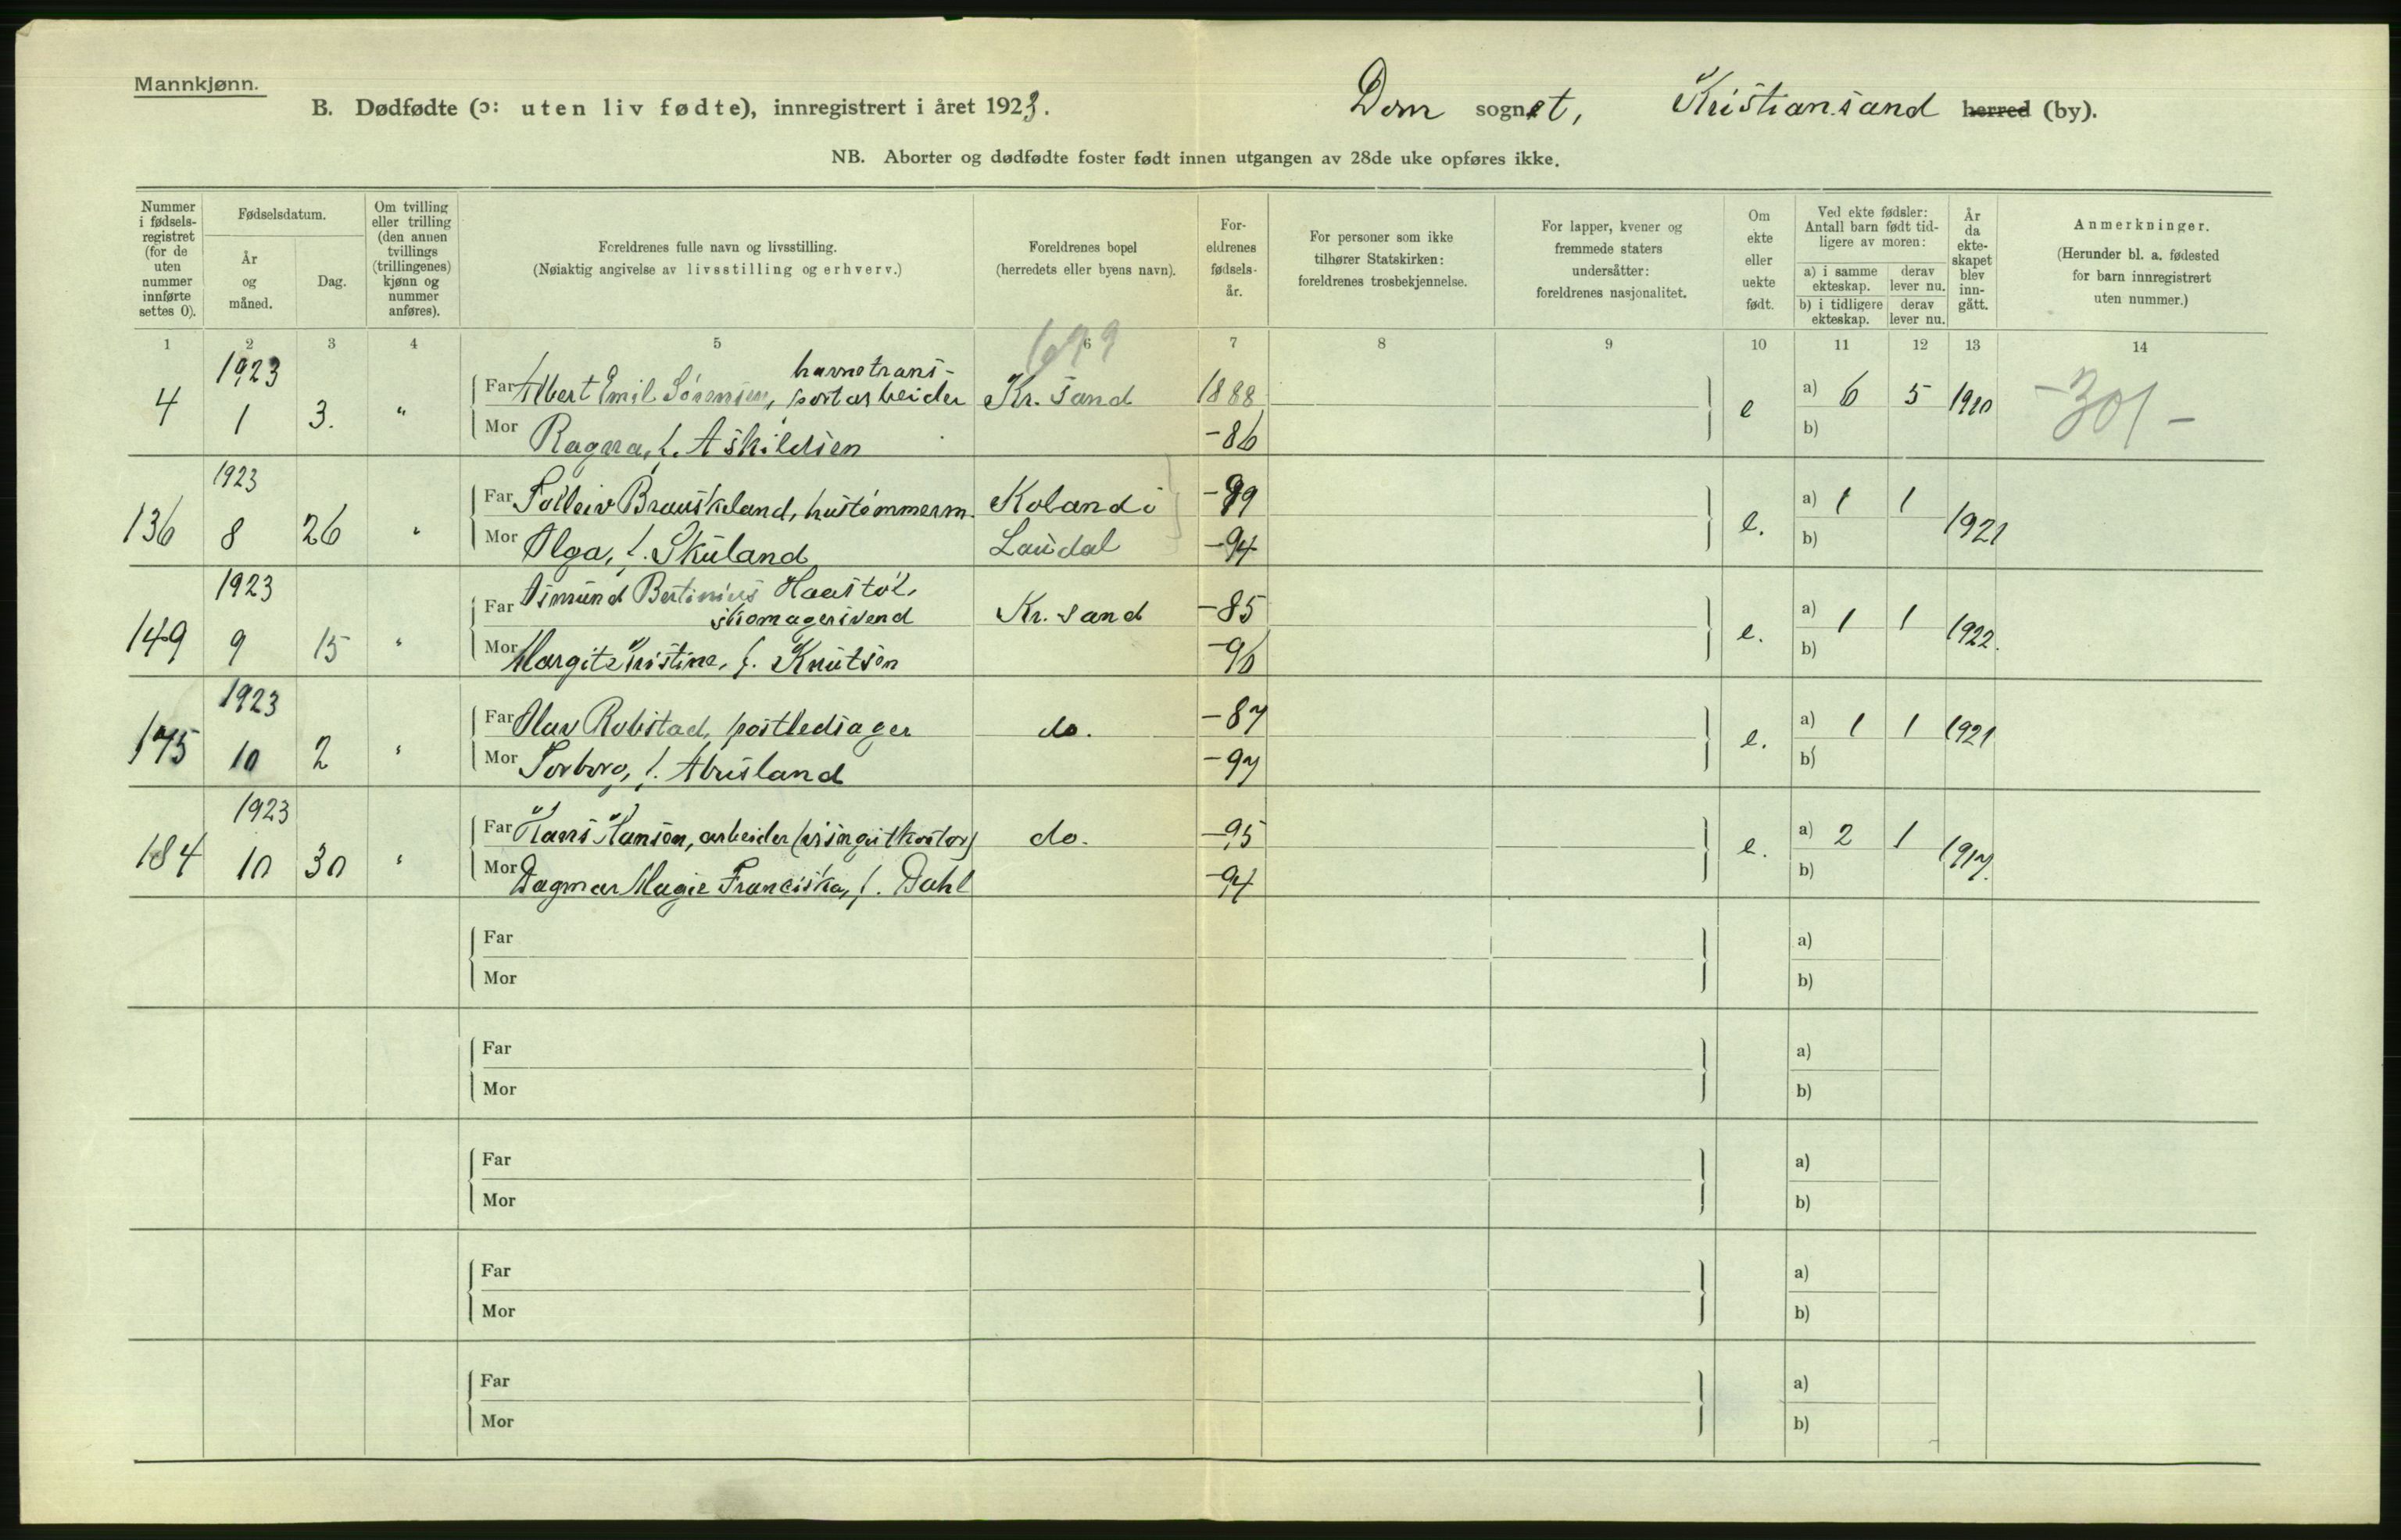 Mannkjønn.
B. Dødfødte (ɔ: uten liv fødte), innregistrert i året 1923.
Dom sognet, Kristiansand herred (by).
NB. Aborter og dødfødte foster født innen utgangen av 28de uke opføres ikke.
Nummer i fødsels-registret (for de uten nummer innførte settes 0).
Fødselsdatum.
År og måned.
Dag.
Om tvilling eller trilling (den annen tvillings (trillingenes) kjønn og nummer anføres).
Foreldrenes fulle navn og livsstilling.
(Nøiaktig angivelse av livsstilling og erhverv.)
Foreldrenes bopel
(herredets eller byens navn).
For-eldrenes fødsels-år.
For personer som ikke tilhører Statskirken: foreldrenes trosbekjennelse.
For lapper, kvener og fremmede staters undersåtter: foreldrenes nasjonalitet.
Om ekte eller uekte født.
Ved ekte fødsler: Antall barn født tid-ligere av moren:
a) i samme ekteskap.
derav lever nu.
b) i tidligere ekteskap.
derav lever nu.
År da ekte-skapet blev inn-gått.
Anmerkninger.
(Herunder bl. a. fødested for barn innregistrert uten nummer.)
1 2 3 4 5 6 7 8 9 10 11 12 13 14
699
1923
havnetrans-
4 1 3. " Far Albert Emil Sørensen, portarbeider Kr. sand 1888 e a) 6 5 1910 -301-
Mor Ragna, f. Askildsen -86 b)
1923
136 8 26 " Far Solleiv Brauskeland, hustømmerm. -99 e. a) 1 1 1921
Mor Olga, f. Skuland Laudal -94 b)
1923
Far Asmund Bertinius Haastøl,
skomagersvend Kr. sand -85
149 9 15 " e. a) 1 1 1922.
Mor Margit Kristine, f. Knutsen -96 b)
1923
175 10 2 " Far Olav Robstad, postledsager do. -87 e. a) 1 1 1921
Mor Torborg, f. Abusland -97 b)
1923
184 10 30 " Far Hans Hansen, arbeider do. -95 e. a) 2 1 1917.
Mor Dagmar Magie Franciska, f. Dahl -94 b)
Far a)
Mor b)
Far a)
Mor b)
Far a)
Mor b)
Far a)
Mor b)
Far a)
Mor b)